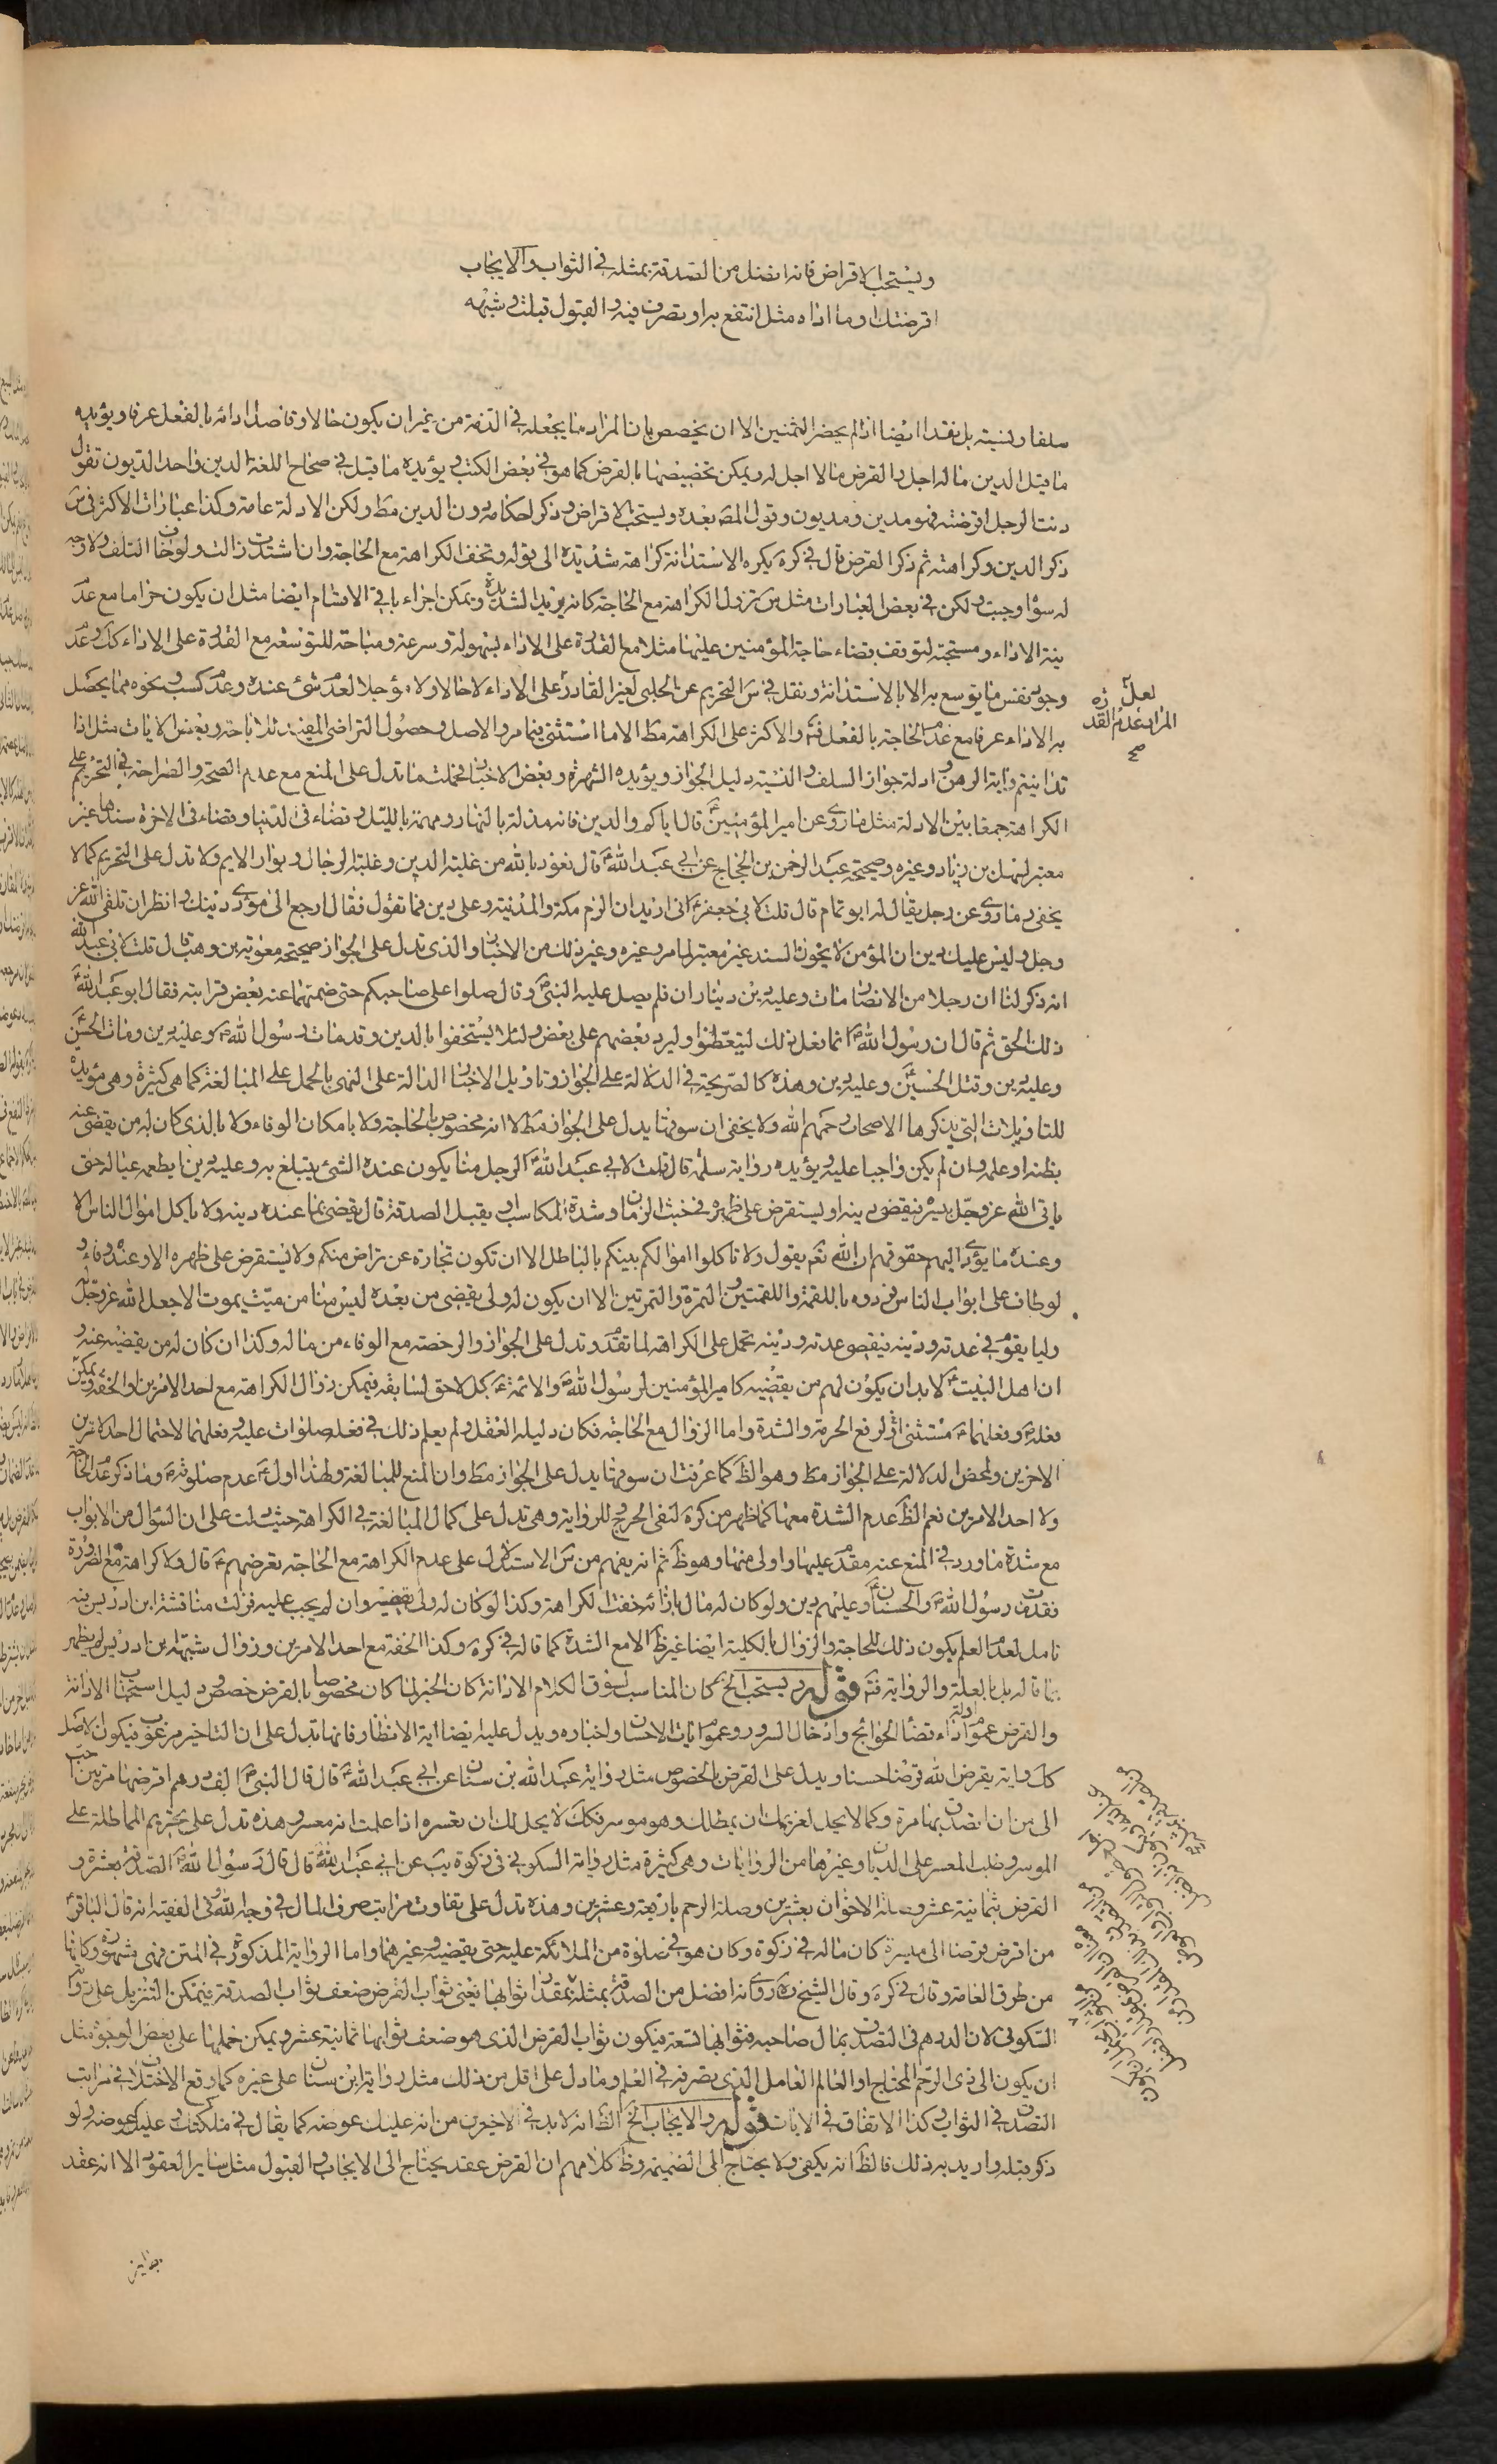 ويستحب الاقراض فانه افضل من الصدقة بمثله في الثواب والايجاب
اقرضتك وما اداه مثل انتفع به او تصرف فيه والقبول قبلت وشبهه
سلفا ونسية بل نقدا ايضا اذا لم يحضر الثمنين الا ان يخصص بان المراد ما يجعله في الذمة من غير ان يكون حالا وقاصدا ادائه بالفعل عرفا ويؤيده
ما قيل الدين ما له اجل والقرض ما لا اجل له ويمكن تخصيصها بالقرض كما هو في بعض الكتب ويؤيده ما قيل في صحاح اللغة الدين واحد الديون تقول
دنت الرجل اقرضته فهو مدين ومديون وقول المص بعده ويستحب الاقراض وذكر احكامه دون الدين مط ولكن الادلة عامة وكذا عبارات الاكثر في س
ذكر الدين وكراهته ثم ذكر القرض قال في كره يكره الاستدانة كراهة شديدة الى قوله وتخف الكراهة مع الحاجة وان اشتدت زالت ولو خاف التلف ولا وجه
له سواه وجبت ولكن في بعض العبارات مثل س تزول الكراهة مع الحاجة كانه يريد الشديدة ويمكن اجراء باقي الاقسام ايضا مثل ان يكون حراما مع عدم
نية الاداء ومستحبة لتوقف قضاء حاجة المؤمنين عليها مثلا مع القدرة على الاداء بسهولة وسرعة ومباحة للتوسعة مع القدرة على الاداء كك وعدم
وجود نفس ما يتوسع به الا بالاستدانة ونقل في س التحريم عن الحلبي لغير القادر على الاداء لا حالا ولا مؤجلا لعدم شئ عنده وعدم كسب ونحوه مما يحصل
به الاداء عرفا مع عدم الحاجة بالفعل فت والاكثر على الكراهة مط الا ما استثنى فيما مر والاصل وحصول التراضي المفيد للاباحة وبعض الايات مثل اذا
تداينتم واية الرهن وادلة جواز السلف والنسية دليل الجواز ويؤيده الشهرة وبعض الاخبار فحملت ما تدل على المنع مع عدم الصحة والصراحة في التحريم على
الكراهة جمعا بين الادلة مثل ما روى عن امير المؤمنين ع قال اياكم والدين فانه مذلة بالنهار ومهمة بالليل وقضاء في الدنيا وقضاء في الاخرة سندها غير
معتبر لسهل بن زياد وغيره وصحيحة عبد الرحمن بن الحجاج عن ابي عبد الله ع قال نعوذ بالله من غلبة الدين وغلبة الرجال وبوار الايم ولا تدل على التحريم كما لا
يخفى وما روى عن رجل يقال له ابو تمام قال قلت لابي جعفر ع اني اريد ان الزم مكة والمدينة وعلى دين فما تقول فقال ارجع الى مؤدى دينك وانظر ان تلقى الله عز
وجل وليس عليك دين ان المؤمن لا يخون السند غير معتبر لما مر وغيره وغير ذلك من الاخبار والذي تدل على الجواز صحيحة معوية بن وهب قال قلت لابي عبد الله
انه ذكر لنا ان رجلا من الانصار مات وعليه دين ديناران فلم يصل عليه النبي ص وقال صلوا على صاحبكم حتى ضمنهما عنه بعض قرابته فقال ابو عبد الله ع
ذلك الحق ثم قال ان رسول الله ص انما فعل ذلك ليتعظوا وليرد بعضهم على بعض ولئلا يستخفوا بالدين وقد مات رسول الله ص وعليه دين ومات الحسن ع
وعليه دين وقتل الحسين ع وعليه دين وهذه كالصريحة في الدلالة على الجواز وتاويل الاخبار الدالة على النهي بالحمل على المبالغة كما هي كثيرة وهي مؤيدة
للتاويلات التي يذكرها الاصحاب رحمهم الله ولا يخفى ان سوقها يدل على الجواز مط لا انه مخصوص بالحاجة ولا بامكان الوفاء ولا بالذي كان له من يقضى عنه
بظنه او علمه وان لم يكن واجبا عليه ويؤيده رواية سلمة قال قلت لابي عبد الله ع الرجل منا يكون عنده الشئ يتبلغ به وعليه دين ايطعمه عياله حتى
ياتي الله عز وجل بيسر فيقضى دينه او يستقرض على ظهره في خبث الزمان وشدة المكاسب او يقبل الصدقة قال يقضى بما عنده دينه ولا ياكل اموال الناس الا
وعنده ما يؤدى اليهم حقوقهم ان الله تعم يقول ولا تاكلوا اموالكم بينكم بالباطل الا ان تكون تجارة عن تراض منكم ولا يستقرض على ظهره الا وعنده وفاء ولو
لو طاف على ابواب الناس فردوه باللقمة واللقمتين والتمرة والتمرتين الا ان يكون له ولى يقضى من بعده ليس منا من ميت يموت الا جعل الله عز وجل له
وليا يقوم في عدته ودينه فيقضى عدته ودينه تحمل على الكراهة لما تقدم وتدل على الجواز والرخصة مع الوفاء من ماله وكذا ان كان له من يقضيه عنه و
ان اهل البيت ع لابد ان يكون لهم من يقضيه كامير المؤمنين لرسول الله ص والائمة ع كل لاحق لسابقه فيمكن زوال الكراهة مع احد الامرين او الخفة ويمكن
فعله ص وفعلهما ع مستثنى او لرفع الحرمة والشدة واما الزوال مع الحاجة فكان دليله العقل ولم يعلم ذلك في فعله صلوات عليه وفعلهما لاحتمال احد الامرين
الاخرين ولمحض الدلالة على الجواز مط وهو الظ كما عرفت ان سوقها يدل على الجواز مط وان المنع للمبالغة ولهذا اول ع عدم صلوته ص وما ذكر عدم الحاجة
ولا احد الامرين نعم الظ عدم الشدة معها كما ظهر من كره لنفى الحرج للرواية وهي تدل على كمال المبالغة في الكراهة حيث دلت على ان السؤال من الابواب
مع شدة ما ورد في المنع عنه مقدم عليها واولى منها وهو ظ ثم انه يفهم من س الاستدلال على عدم الكراهة مع الحاجة بقرضهم ع قال ولا كراهة مع الضرورة
فقد مات رسول الله ص والحسنان ع وعليهم دين ولو كان له مال بازائه خفت الكراهة وكذا لو كان له ولى يقضيه وان لم يجب عليه فزالت مناقشة ابن ادريس فيه
تامل لعدم العلم بكون ذلك للحاجة والزوال بالكلية ايضا غير ظ الا مع الشدة كما قاله في كره وكذا الخفة مع احد الامرين وزوال شبهة ابن ادريس لم يظهر
بما قاله بل بالعلة والرواية فت قوله ويستحب الخ كان المناسب لسوق الكلام الادانة كان الخبر لما كان مخصوصا بالقرض خصه ودليل استحباب الادانة
والقرض عموم ادلة اداء قضاء الحوائج وادخال السرور وعموم ايات الاحسان واخباره ويدل عليه ايضا اية الانظار فانها تدل على ان التاخير مرغوب فيكون الاصل
كك واية يقرض الله قرضا حسنا ويدل على القرض بالخصوص مثل رواية عبد الله بن سنان عن ابي عبد الله ع قال قال النبي ص الف درهم اقرضها مرتين احب
الى من ان اتصدق بها مرة وكما لا يحل لغريمك ان يمطلك وهو موسر فكك لا يحل لك ان تعسره اذا علمت انه معسر وهذه تدل على تحريم المماطلة على
الموسر وطلب المعسر على الديان وغيرها من الروايات وهي كثيرة مثل رواية السكوني في زكوة يب عن ابي عبد الله ع قال قال رسول الله ص الصدقة بعشرة و
القرض بثمانية عشر وصلة الاخوان بعشرين وصلة الرحم باربعة وعشرين وهذه تدل على تفاوت مراتب صرف المال في وجه الله وفي الفقيه انه قال الباقر ع
من اقرض قرضا الى ميسرة كان ماله في زكوة وكان هو في صلوة من الملائكة عليه حتى يقضيه وغيرهما واما الرواية المذكورة في المتن فهي مشهورة وكانها
من طرق العامة وقال في كره وقال الشيخ ره روى انه افضل من الصدقة بمثله بمقدار ثوابها يعني ثواب القرض ضعف ثواب الصدقة فيمكن التنزيل على رواية
السكوني لان الدرهم في التصدق بمال صاحبه فثوابها تسعة فيكون ثواب القرض الذي هو ضعف ثوابها ثمانية عشر ويمكن حملها على بعض الوجوه مثل
ان يكون الى ذى الرحم المحتاج او العالم العامل الذي يصرفه في العلم وما دل على اقل من ذلك مثل رواية ابن سنان على غيره كما وقع الاختلاف في مراتب
التصدق في الثواب وكذا الاتفاق في الايات قوله والايجاب الخ الظ انه لابد في الاخيرين من انه عليك عوضه كما يقال في ملكتك وعليك عوضه ولو
ذكر قبله واريد به ذلك فالظ انه يكفى ولا يحتاج الى الضميمة وظ كلامهم ان القرض عقد يحتاج الى الايجاب والقبول مثل ساير العقود الا انه عقد
لعل ره
المراد عدم القدرة
صح
جايز